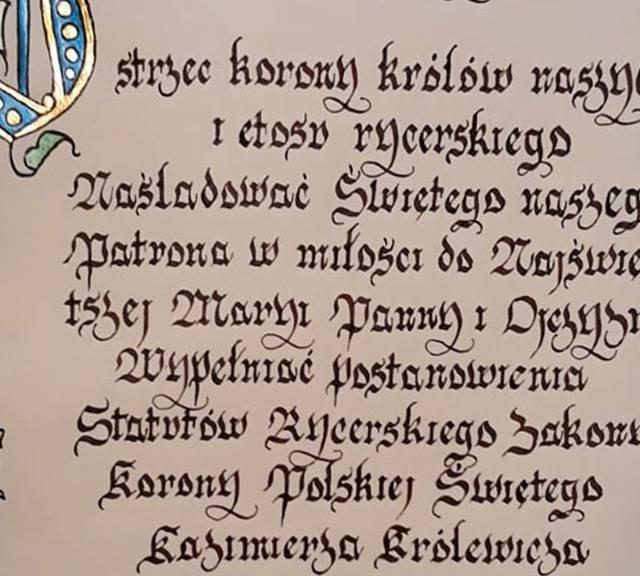 strzec korony królów naszyc
i etosu rycerskiego
Naśladować Świętego naszeg
Patrona w miłości do Najświę
tszej Maryi Panny i Ojczyzn
Wypełniać postanowienia
Statutów Rycerskiego Zakonu
Korony Polskiej Świętego
Kazimierza Królewicza